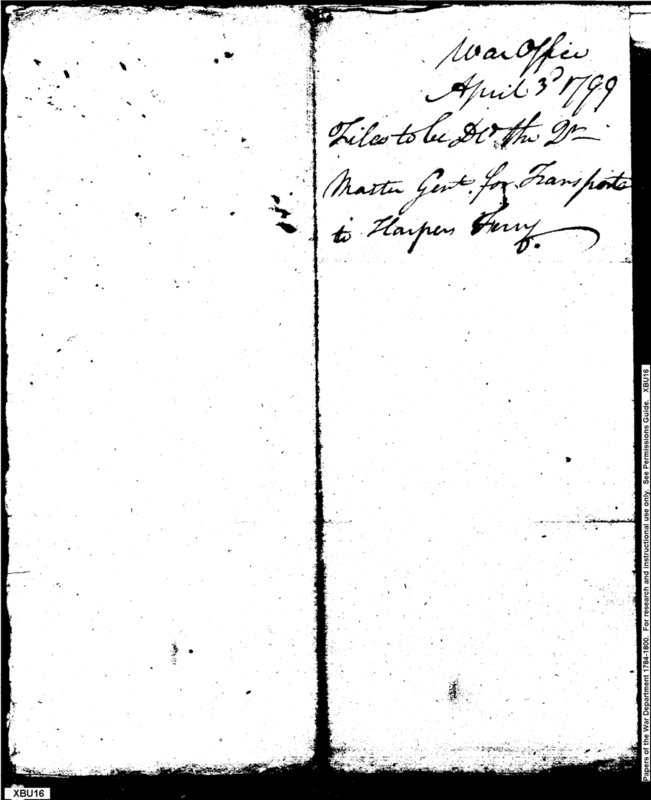 War Office
April 3d 1799
Files to be Dd. the Qr
Master Genl. for Transports
to Harpers Ferry.
Papers of the War Department 1784-1800. For research and instructional use only. See Permissions Guide. XBU16
XBU16